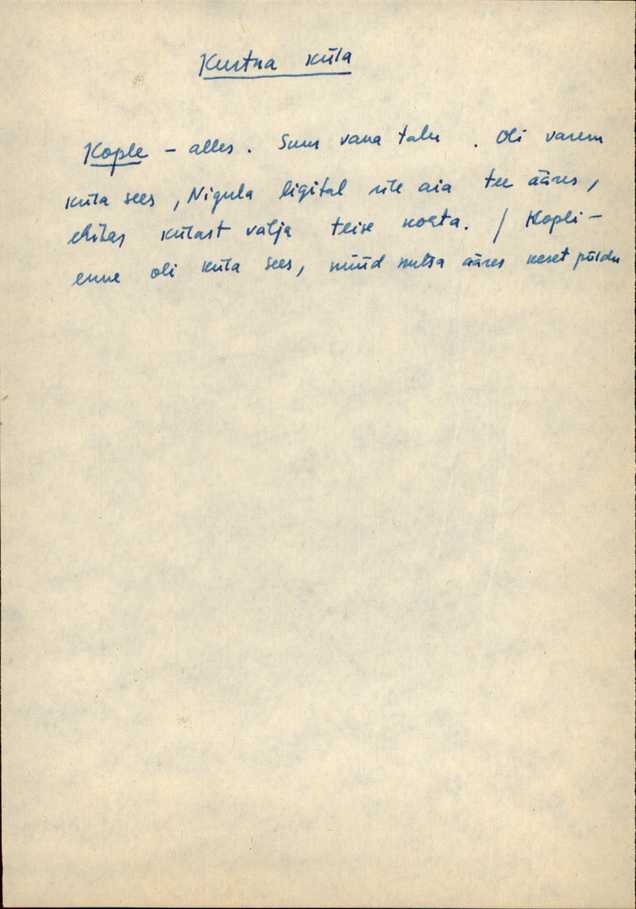 Kurtna küla
Kople - alles. Suur vana talu. Oli varem
küla sees, Nigula ligital üle aia tee ääres,
ehitas külast välja teise kohta. / Kopli -
enne oli küla sees, nüüd metsa ääres keset põldu